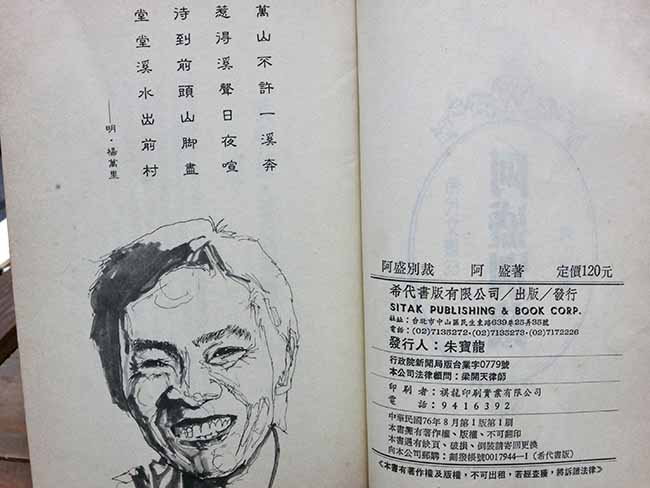 萬山不許一溪奔
惹得溪聲日夜喧
待到前頭山脚盡
堂堂溪水出前村
——明·楊萬里
阿盛別裁　阿盛著　定價120元
希代書版有限公司／出版／發行
SITAK PUBLISHING & BOOK CORP.
社址：台北市中山區民生東路639巷25弄35號
電話：(02)7135272·(02)7135273·(02)7172226
發行人：朱寶龍
行政院新聞局版台業字0779號
本公司法律顧問：梁開天律師
印刷者：祺龍印刷實業有限公司
電話：9416392
中華民國76年8月第1版第1刷
本書擁有著作權、版權、不可翻印
本書遇有缺頁、破損、倒裝請寄回更換
向本公司郵購：劃撥帳號0017944—1（希代書版）
《本書有著作權及版權，不可出租，若經查獲，將訴諸法律》